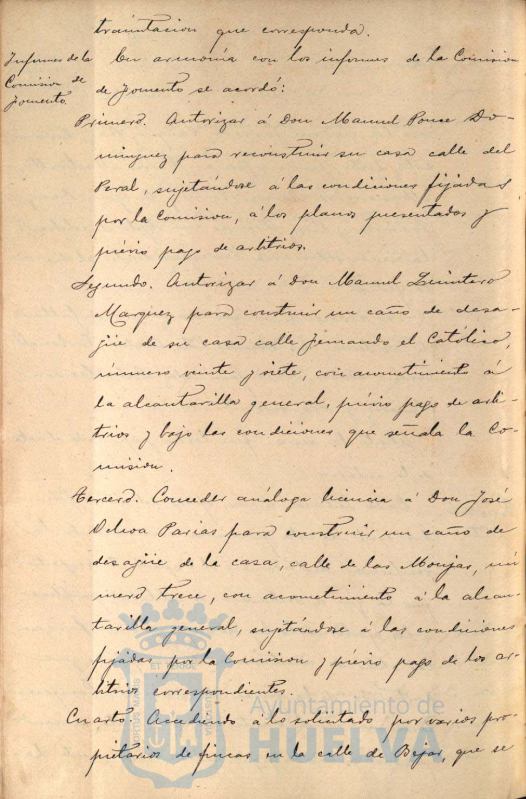 tramitacion que corresponda.
Informes de la
Comision de
Fomento.
En armonía con los informes de la Comision
de Fomento se acordó:
Primero. Autorizar á Don Manuel Ponce Do-
minguez para reconstruir su casa calle del
Peral, sujetándose á las condiciones fijadas
por la Comision, á los planos presentados y
prévio pago de arbitrios.
Segundo. Autorizar á Don Manuel Quintero
Marquez para construir un caño de desa-
güe de su casa calle Fernando el Católico,
número veinte y siete, con acometimiento á
la alcantarilla general, prévio pago de arbi-
trios y bajo las condiciones que señala la Co-
mision.
Tercero. Conceder análoga licencia á Don José
Ochoa Parias para construir un caño de
desagüe de la casa, calle de las Monjas, nú-
mero trece, con acometimiento á la alcan-
tarilla general, sujetándose á las condiciones
fijadas por la Comision y prévio pago de los ar-
bitrios correspondientes.
Cuarto. Accediendo á lo solicitado por varios pro-
pietarios de fincas en la calle de Bejar, que se
Ayuntamiento de
HUELVA